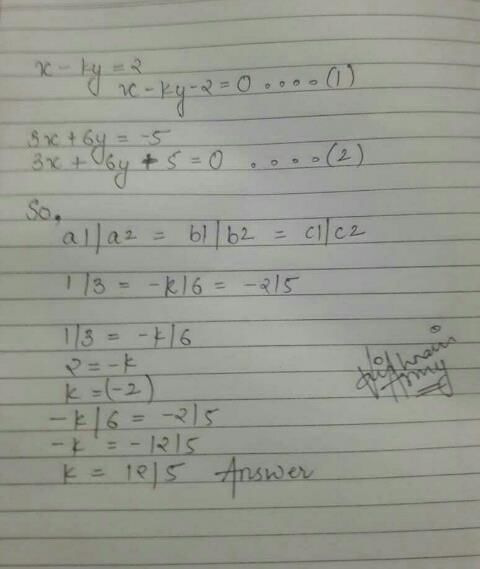 x - ky = 2
x - ky - 2 = 0 .... (1)
3x + 6y = -5
3x + 6y + 5 = 0 .... (2)
So,
a1/a2 = b1/b2 = c1/c2
1/3 = -k/6 = -2/5
1/3 = -k/6
2 = -k
k = (-2)
-k/6 = -2/5
-k = -12/5
k = 12/5 Answer